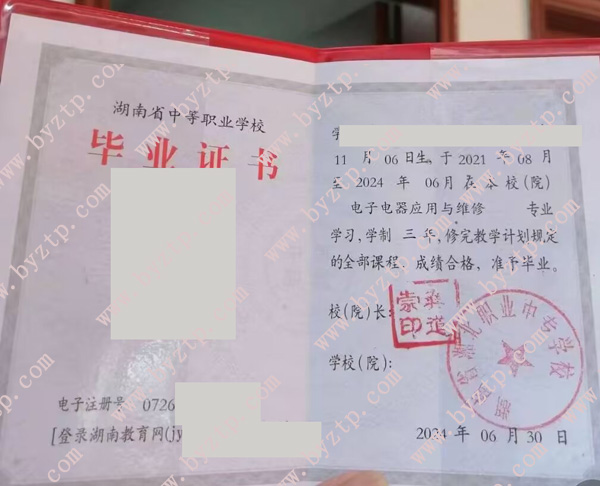 湖南省中等职业学校
毕业证书
电子注册号 0726
[登录湖南教育网(jy
学
11 月 06 日生, 于 2021 年 08 月
至 2024 年 06月 在本校(院)
电子电器应用与维修 专业
学习, 学制 三年, 修完教学计划规定
的全部课程、成绩合格, 准予毕业。
校(院)长:
学校(院):
2024 年 06 月 30 日
www.byztp.com